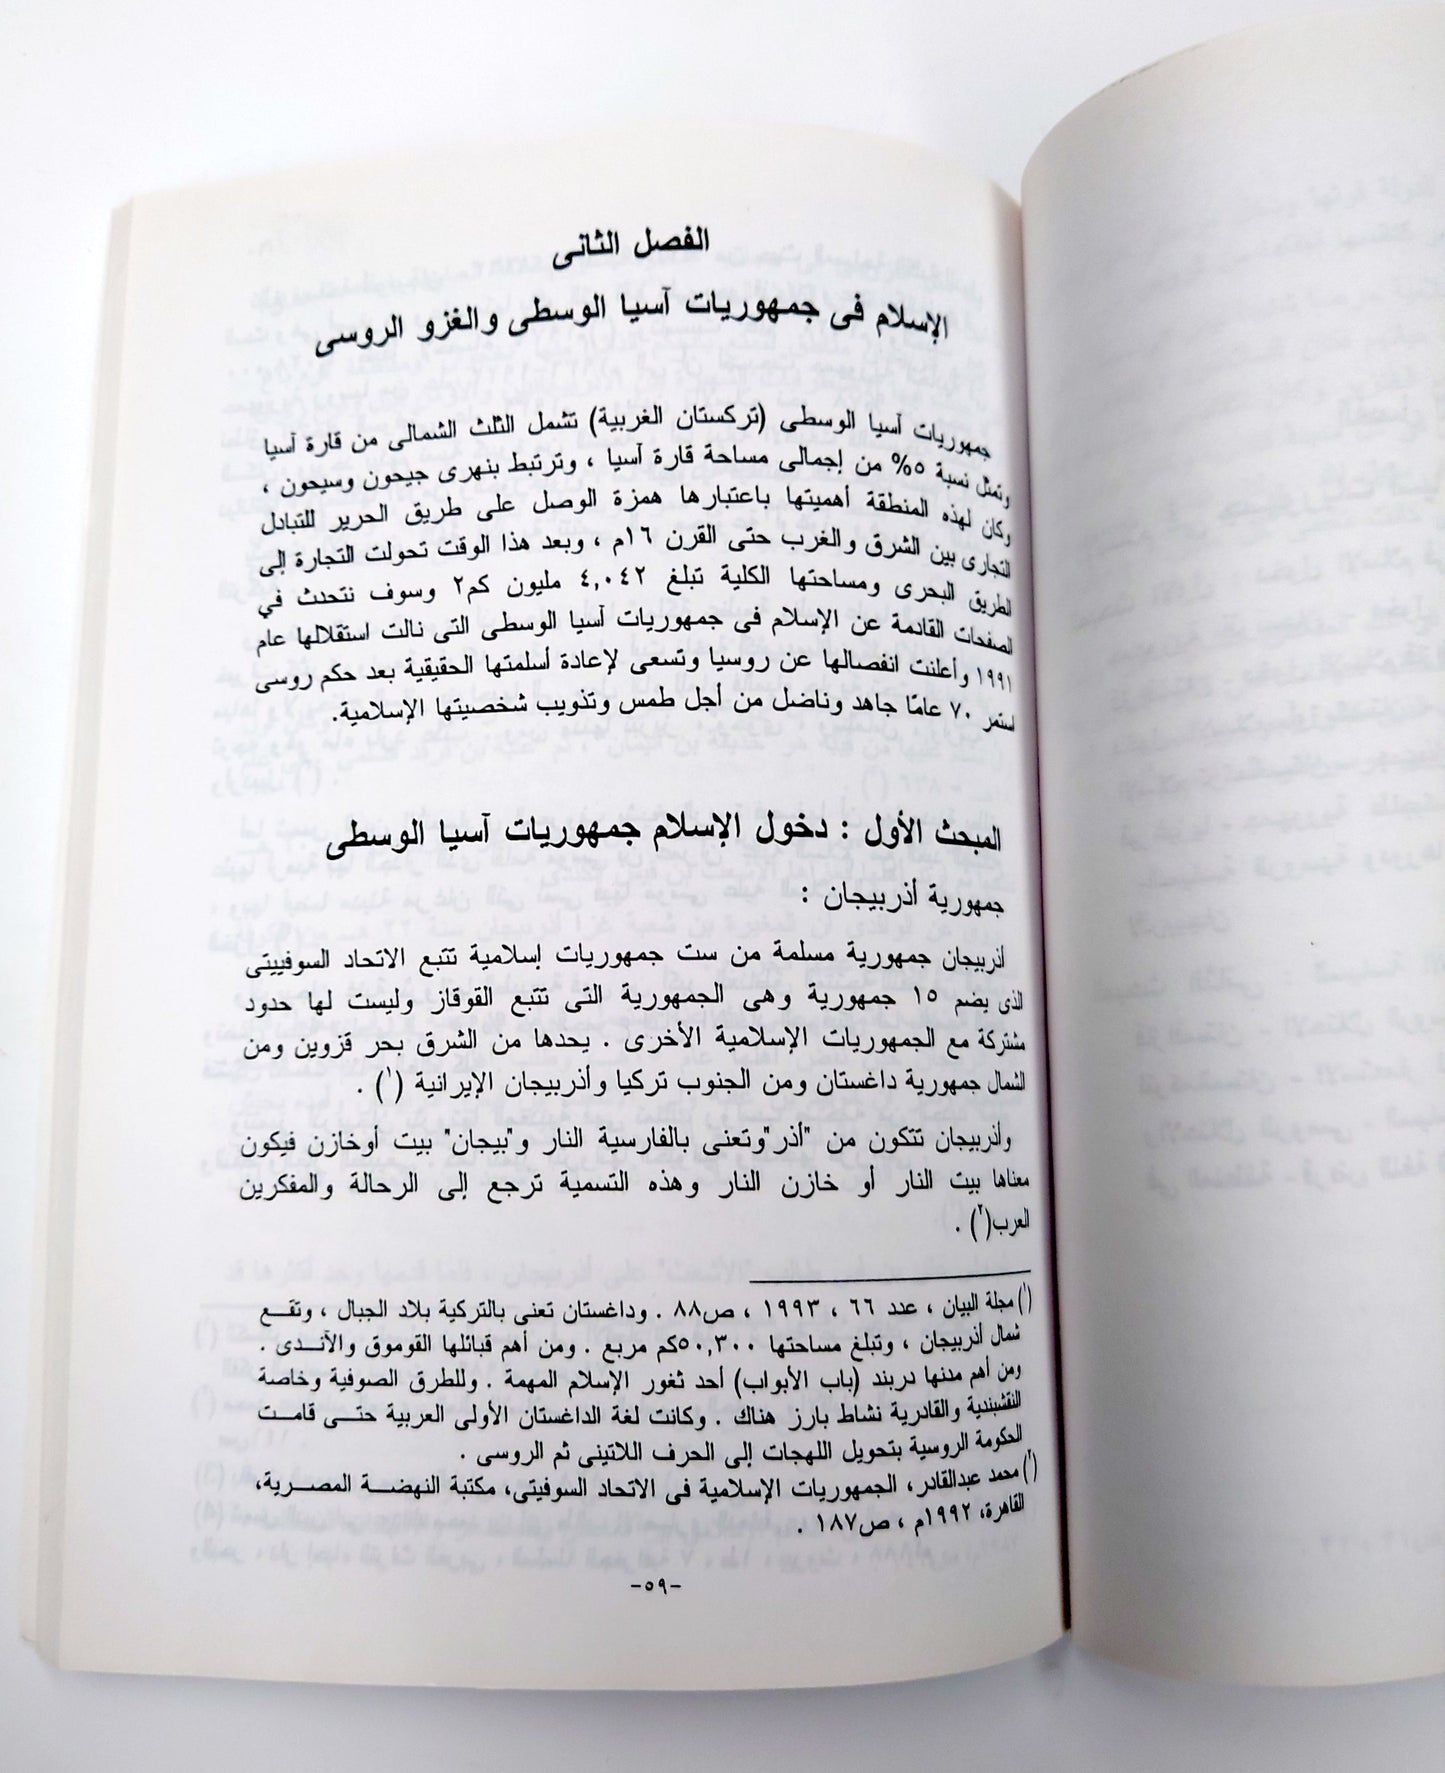 الفصل الثانى
الإسلام فى جمهوريات آسيا الوسطى والغزو الروسى
جمهوريات آسيا الوسطى (تركستان الغربية) تشمل الثلث الشمالى من قارة آسيا
وتمثل نسبة ٥% من إجمالى مساحة قارة آسيا ، وترتبط بنهرى جيحون وسيحون ،
وكان لهذه المنطقة أهميتها باعتبارها همزة الوصل على طريق الحرير للتبادل
التجارى بين الشرق والغرب حتى القرن ١٦م ، وبعد هذا الوقت تحولت التجارة إلى
الطريق البحرى ومساحتها الكلية تبلغ ٤,٠٤٢ مليون كم٢ وسوف نتحدث في
الصفحات القادمة عن الإسلام فى جمهوريات آسيا الوسطى التى نالت استقلالها عام
١٩٩١ وأعلنت انفصالها عن روسيا وتسعى لإعادة أسلمتها الحقيقية بعد حكم روسى
استمر ٧٠ عامًا جاهد وناضل من أجل طمس وتذويب شخصيتها الإسلامية.
المبحث الأول : دخول الإسلام جمهوريات آسيا الوسطى
جمهورية أذربيجان :
أذربيجان جمهورية مسلمة من ست جمهوريات إسلامية تتبع الاتحاد السوفييتى
الذى يضم ١٥ جمهورية وهى الجمهورية التى تتبع القوقاز وليست لها حدود
مشتركة مع الجمهوريات الإسلامية الأخرى . يحدها من الشرق بحر قزوين ومن
الشمال جمهورية داغستان ومن الجنوب تركيا وأذربيجان الإيرانية (١) .
وأذربيجان تتكون من "أذر"وتعنى بالفارسية النار و"بيجان" بيت أوخازن فيكون
معناها بيت النار أو خازن النار وهذه التسمية ترجع إلى الرحالة والمفكرين
العرب(٢) .
(١) مجلة البيان ، عدد ٦٦ ، ١٩٩٣ ، ص٨٨ . وداغستان تعنى بالتركية بلاد الجبال ، وتقـع
شمال أذربيجان ، وتبلغ مساحتها ٥٠,٣٠٠كم مربع . ومن أهم قبائلها القوموق والآنـدى .
ومن أهم مدنها دربند (باب الأبواب) أحد ثغور الإسلام المهمة . وللطرق الصوفية وخاصة
النقشبندية والقادرية نشاط بارز هناك . وكانت لغة الداغستان الأولى العربية حتـى قامـت
الحكومة الروسية بتحويل اللهجات إلى الحرف اللاتينى ثم الروسى .
(٢) محمد عبدالقادر، الجمهوريات الإسلامية فى الاتحاد السوفيتى، مكتبة النهضـة المصـرية،
القاهرة، ١٩٩٢م ، ص١٨٧ .
-٥٩-